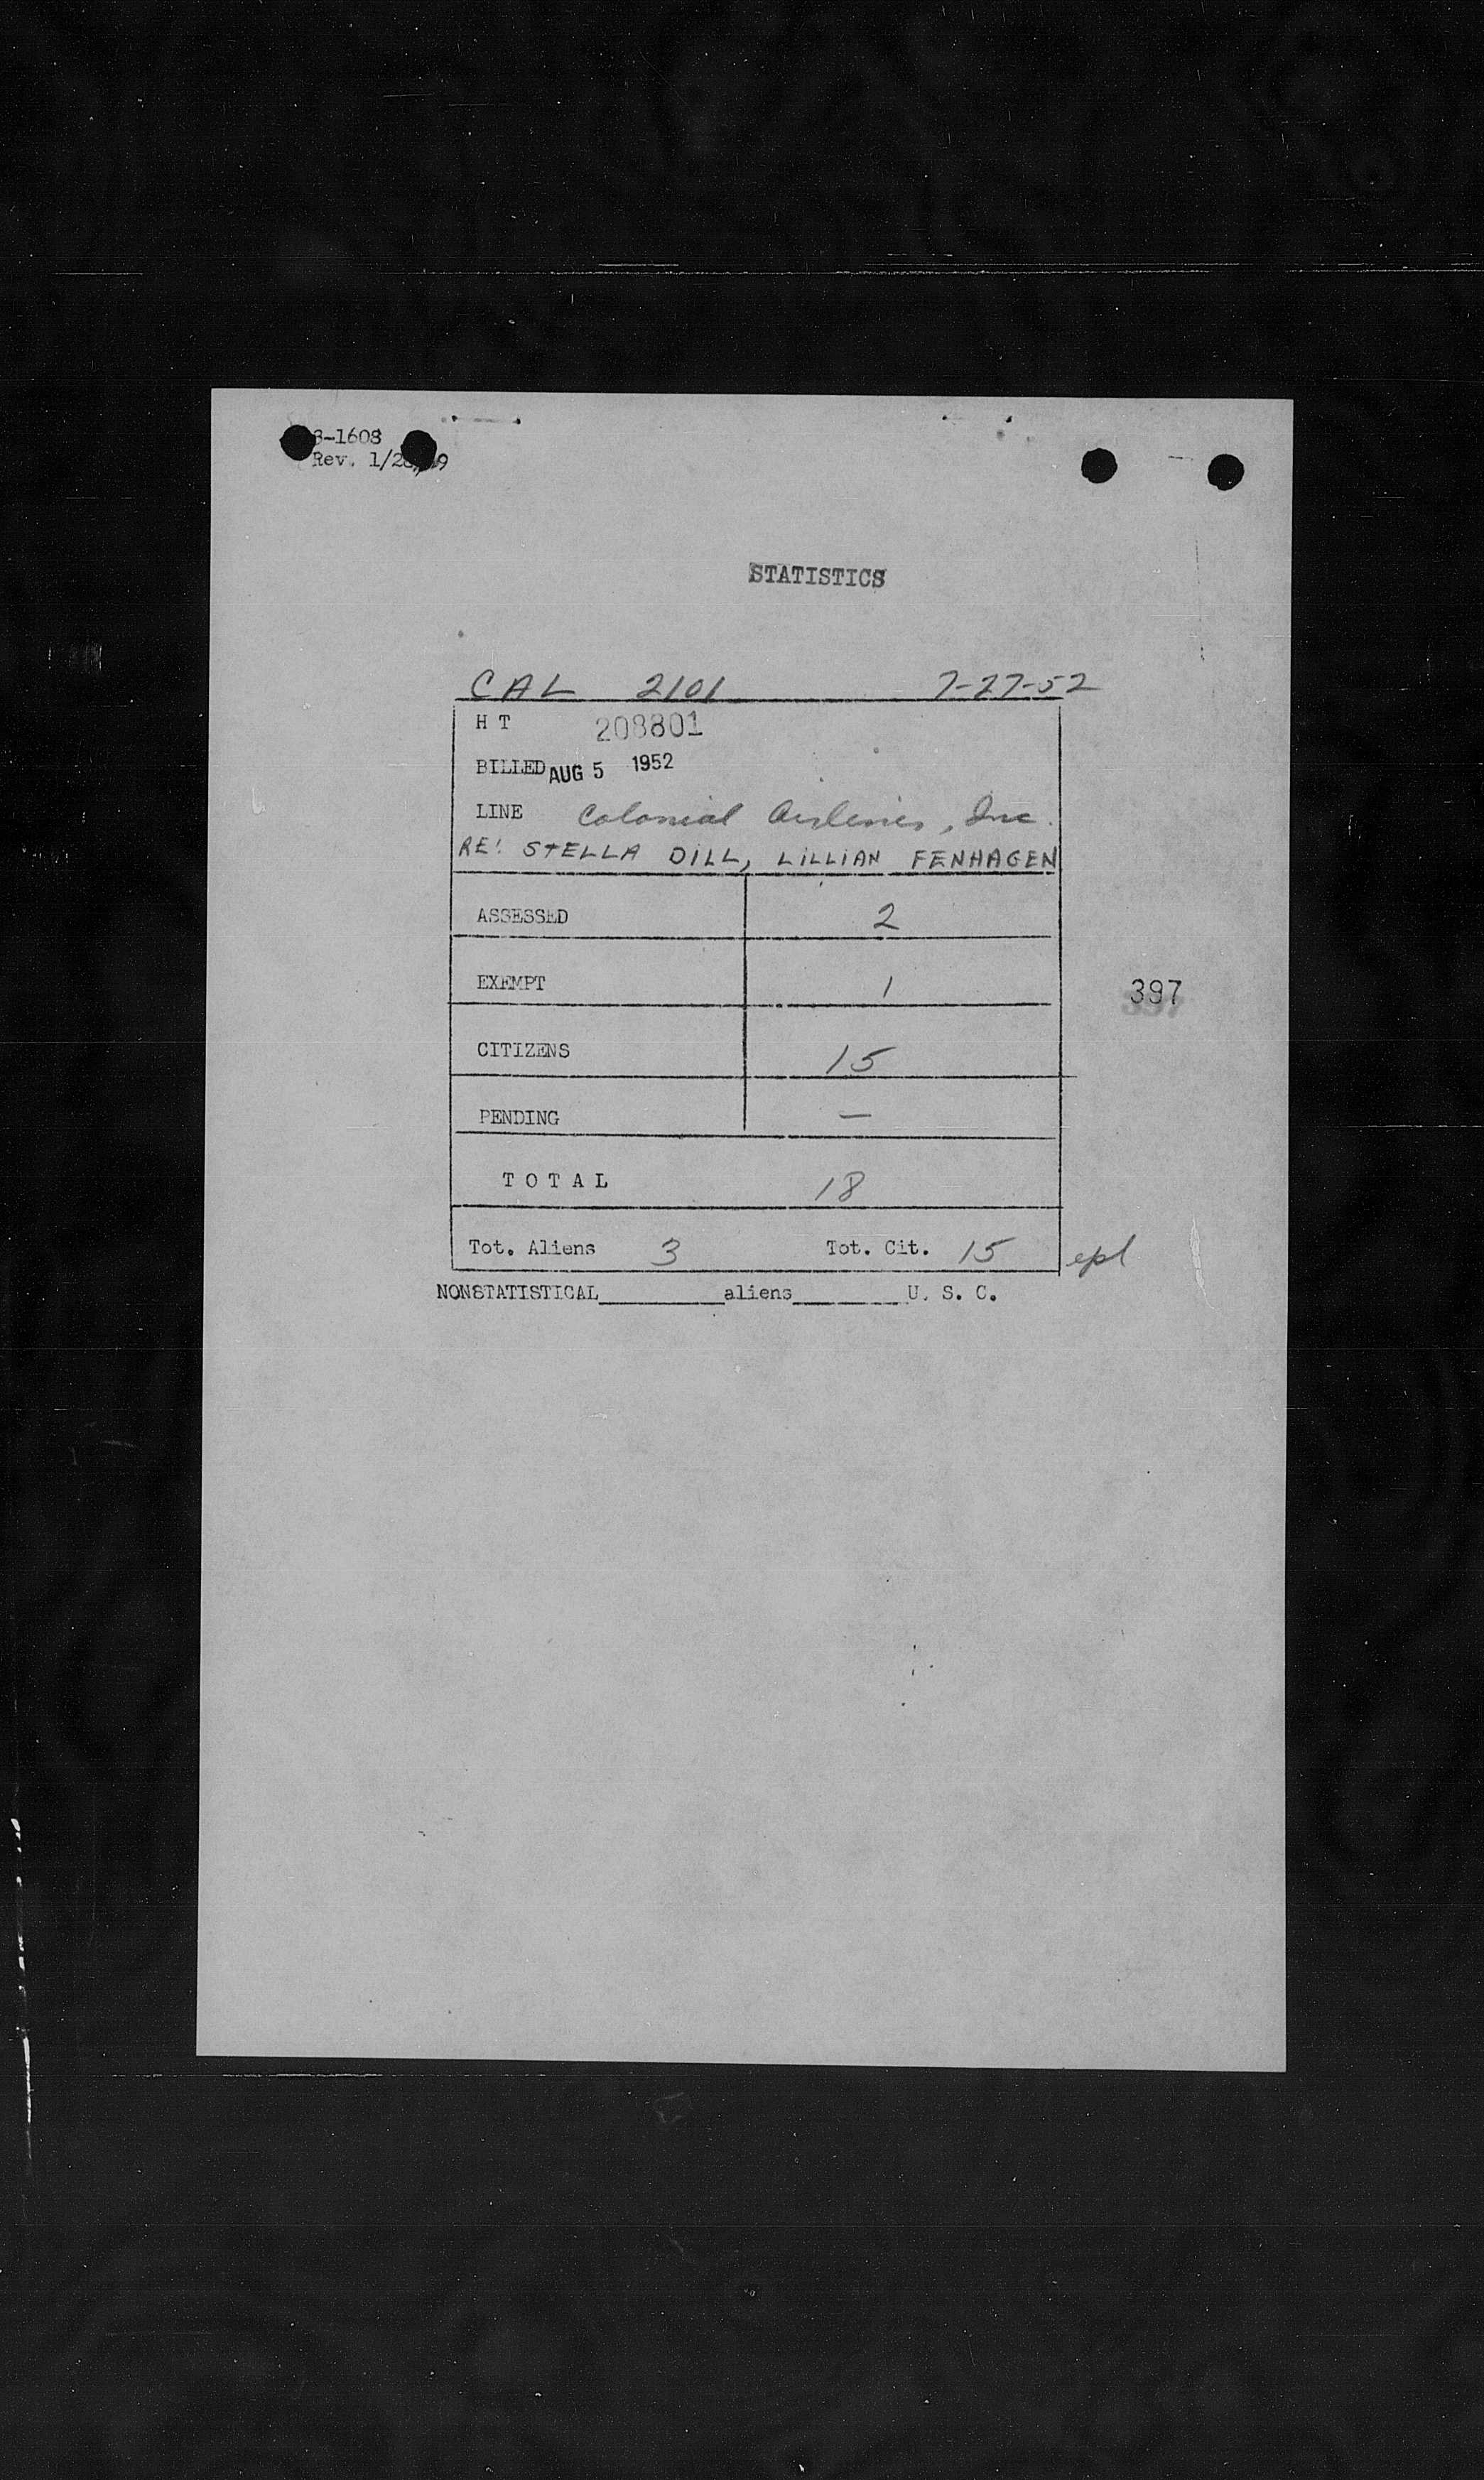 3-1608
Rev. 1/28/49
STATISTICS
CAL 2101 7-27-52
H T 208801
BILLED AUG 5 1952
LINE Colonial Airlines, Inc.
RE: STELLA DILL, LILLIAN FENHAGEN
ASSESSED 2
EXEMPT 1
397
CITIZENS 15
PENDING —
T O T A L 18
Tot. Aliens 3 Tot. Cit. 15 epl
NONSTATISTICAL________aliens________U. S. C.